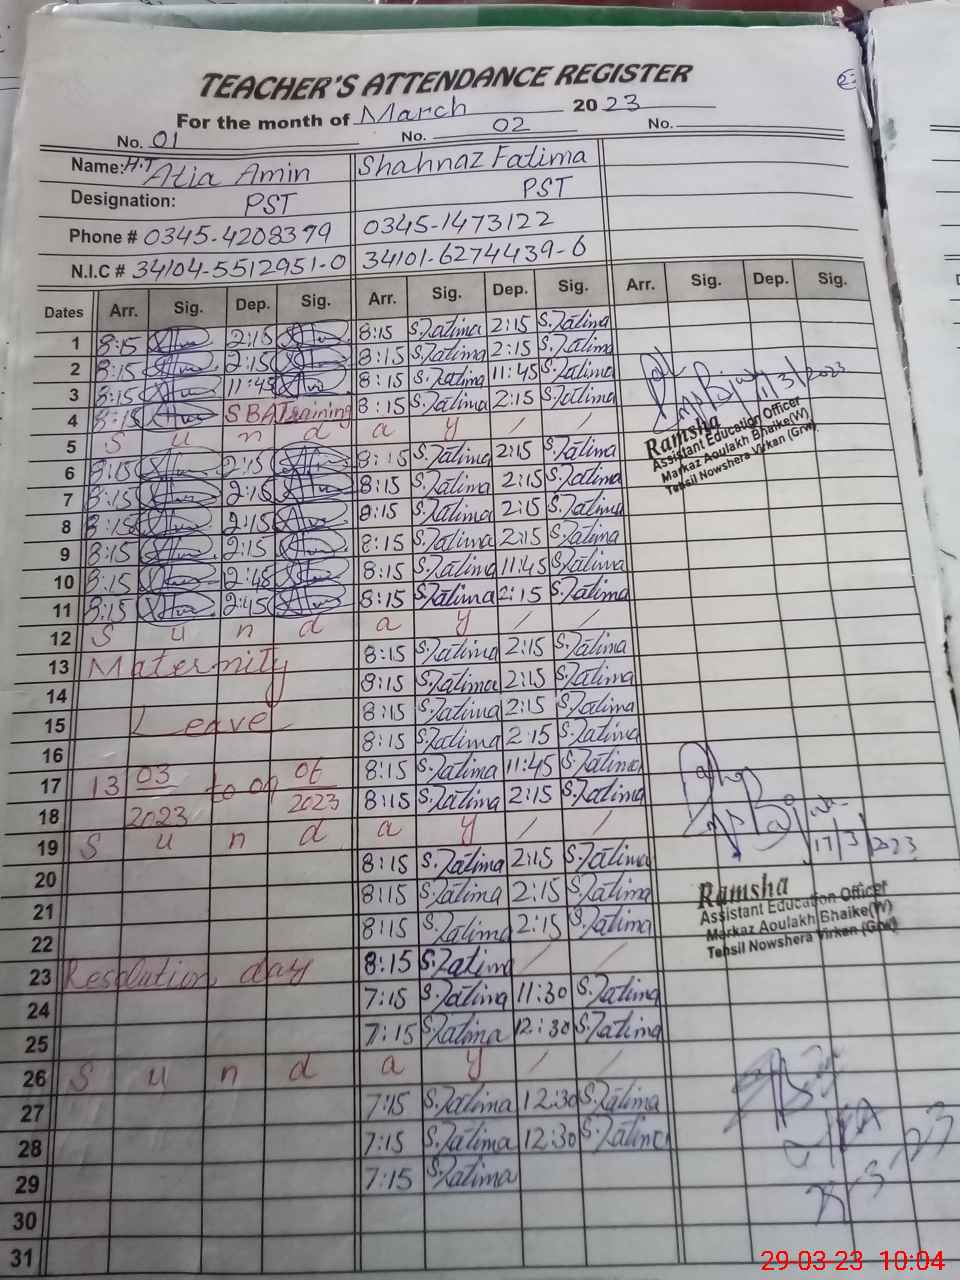 TEACHER'S ATTENDANCE REGISTER
For the month of March 2023
No. 01 No. 02 No.
Name: H.T Atia Amin Shahnaz Fatima
Designation: PST PST
Phone # 0345-4208379 0345-1473122
N.I.C # 34104-5512951-0 34101-6274439-6
Dates Arr. Sig. Dep. Sig. Arr. Sig. Dep. Sig. Arr. Sig. Dep. Sig.
1 8:15 2:15 8:15 S.Fatima 2:15 S.Fatima
2 8:15 2:15 8:15 S.Fatima 2:15 S.Fatima
3 8:15 11:45 8:15 S.Fatima 11:45 S.Fatima
4 8:15 SBA Training 8:15 S.Fatima 2:15 S.Fatima
5 S u n d a y / /
6 8:15 2:15 8:15 S.Fatima 2:15 S.Fatima
7 8:15 2:15 8:15 S.Fatima 2:15 S.Fatima
8 8:15 2:15 8:15 S.Fatima 2:15 S.Fatima
9 8:15 2:15 8:15 S.Fatima 2:15 S.Fatima
10 8:15 2:45 8:15 S.Fatima 11:45 S.Fatima
11 8:15 2:45 8:15 S.Fatima 2:15 S.Fatima
12 S u n d a y / /
13 Maternity 8:15 S.Fatima 2:15 S.Fatima
14 8:15 S.Fatima 2:15 S.Fatima
15 Leave 8:15 S.Fatima 2:15 S.Fatima
16 8:15 S.Fatima 2:15 S.Fatima
17 13 03 to 09 06 8:15 S.Fatima 11:45 S.Fatima
18 2023 2023 8:15 S.Fatima 2:15 S.Fatima
19 S u n d a y / /
20 8:15 S.Fatima 2:15 S.Fatima
21 8:15 S.Fatima 2:15 S.Fatima
22 8:15 S.Fatima 2:15 S.Fatima
23 Resolution day 8:15 S.Fatima / /
24 7:15 S.Fatima 11:30 S.Fatima
25 7:15 S.Fatima 12:30 S.Fatima
26 S u n d a y / /
27 7:15 S.Fatima 12:30 S.Fatima
28 7:15 S.Fatima 12:30 S.Fatima
29 7:15 S.Fatima
30
31
Ramsha
Assistant Education Officer
Markaz Aoulakh Bhaike(W)
Tehsil Nowshera Virkan (Grw)
17/3/2023
Ramsha
Assistant Education Officer
Markaz Aoulakh Bhaike(W)
Tehsil Nowshera Virkan (Grw)
29-03-23 10:04